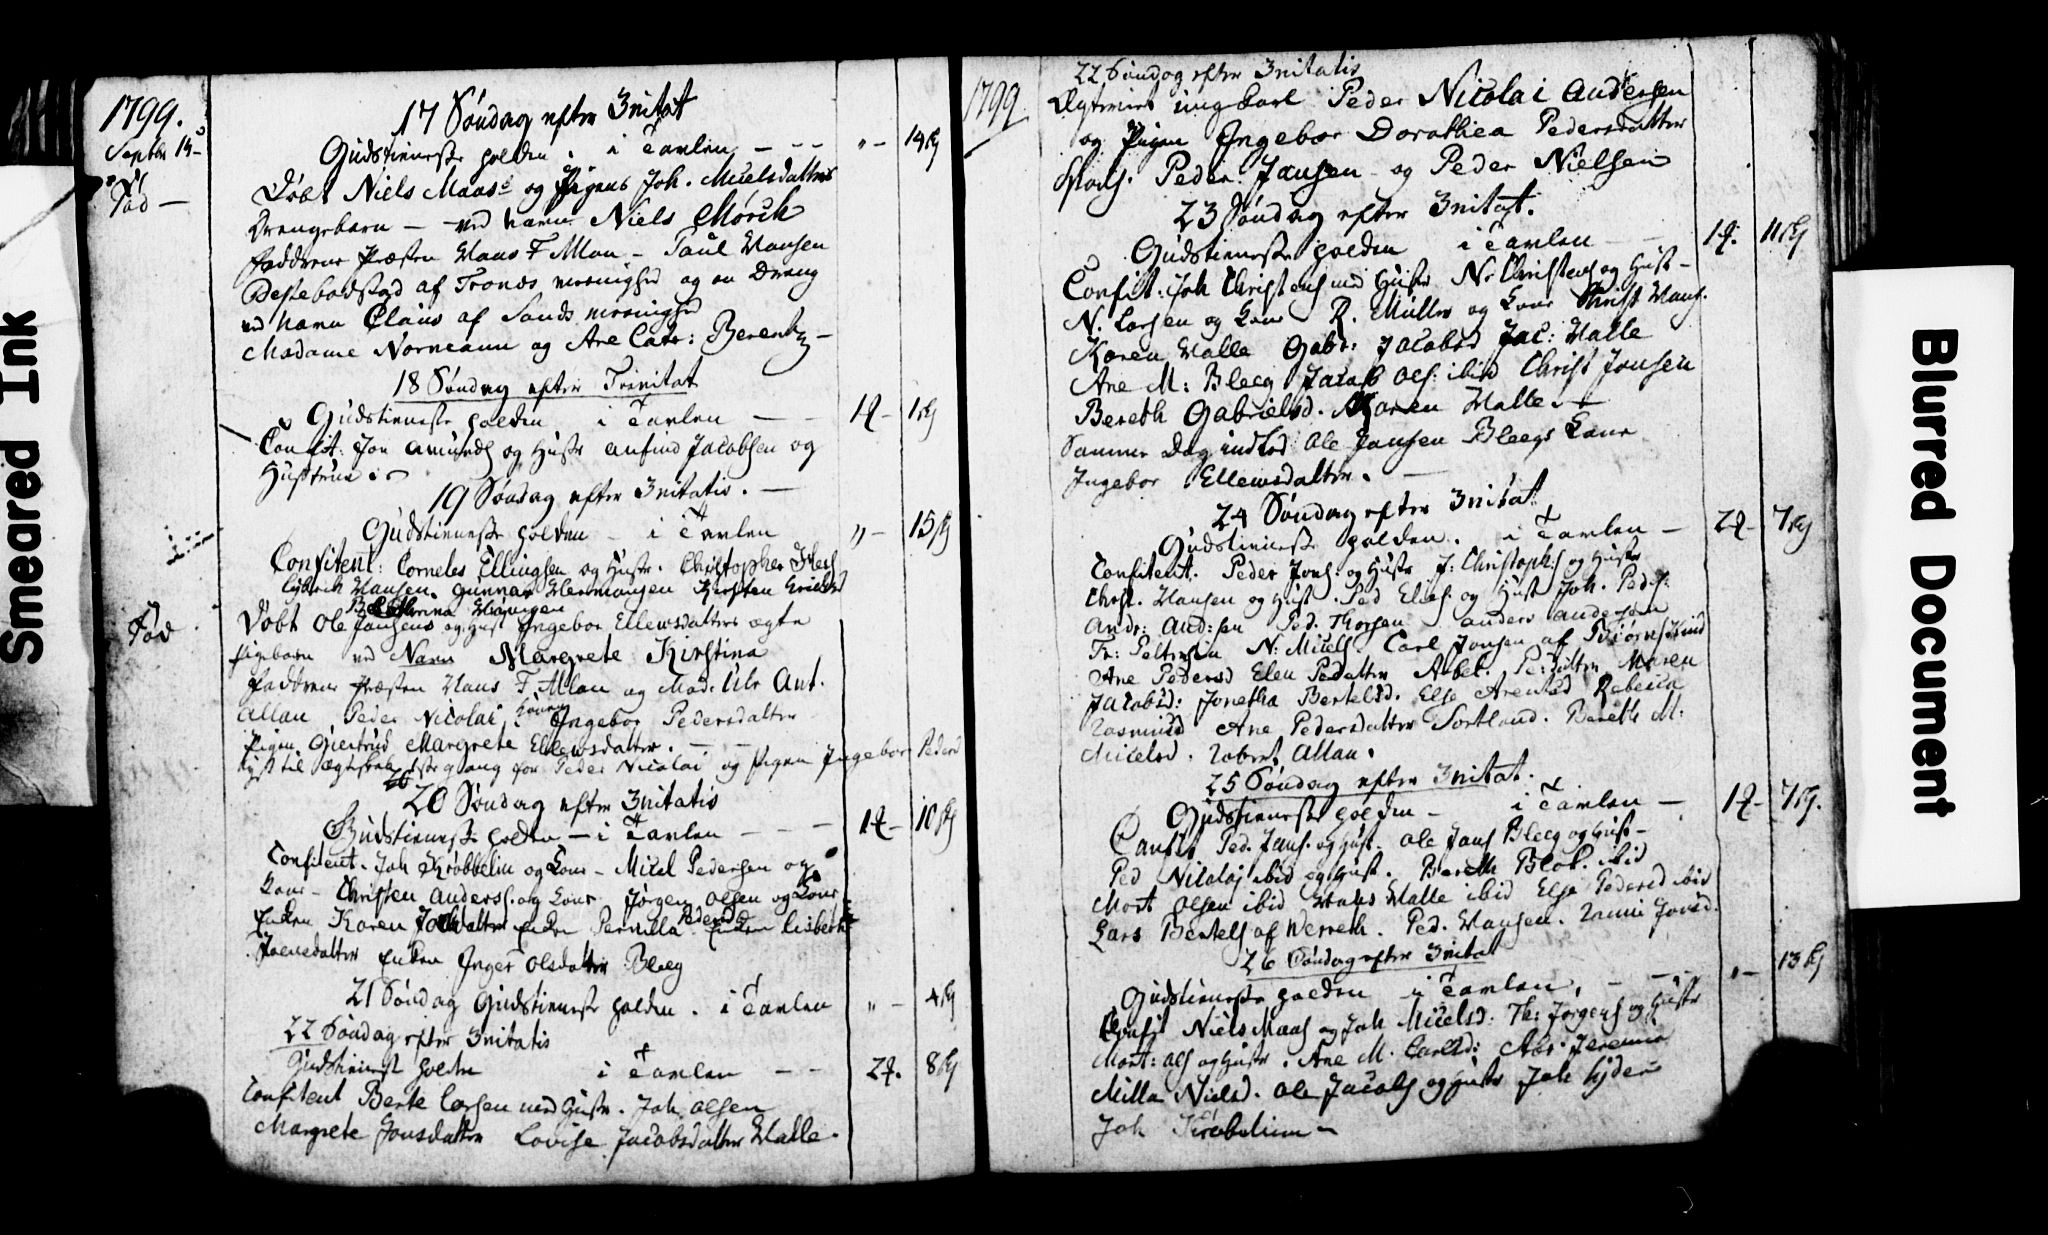 Smeared Ink
1799.
Septbr 15
Fød —
Fød
17 Søndag efter 3nitat
Gudstienneste holden. i Tavlen — — — " — 14 ß
Døbt Niels Maas og Pigens Joh. Micelsdatters
Drengebarn — ved navn Niels Mörch
Faddrene Præsten Hans F Allan — Paul Hansen
af Tronds menighed og en Dreng
ved Navn Claus af Sands menighed
Madame Normann og Ane Catr: Berentz —
18 Søndag efter Trinitat
Gudstienneste holden i Tavlen — 1 — 1 ß
Confit: Jon Amunds og Hustr Anfind Jacobsen og
Hustrue
19 Søndag efter 3nitatis. —
Gudstienneste holden — i Tavlen " — 15 ß
Confitent: Corneles Ellingsen og Hustr. Christopher
Hansen. Gunnar Hermansen Kirsten
Døbt Ole Jansens og Hust Ingebor Ellewsdatters ægte
Pigebarn ved Navn Margrete Kirstina
Faddrene Præsten Hans F. Allan og Mad. Ulr Ant.
Allan Peder Nicolai, Ingebor Pedersdatter
Pigen Giertrud Margrete Ellewsdatter. — —
lyst til Ægteskab 1ste gang for Peder Nicolai og Pigen Ingebor Pedersd
20 Søndag efter 3nitatis
Gudstienneste holden — i Tavlen — — — 1 — 10 ß
Confitent. Joh Kröbbelin og Kone — Micel Pedersen og
Kone — Christen Anderss. og Kone Jørgen Olsen og Kone
Enken Karen datter Enken Pernilla Pedersd Enken Lisbeth
datter Enken Inger Olsdatter Bleeg
21 Søndag Gudstienneste holden. i Tavlen " — 4 ß
22 Søndag efter 3nitatis
Gudstienest holden i Tavlen — — 2 . 8 ß
Confitent Berte Larsen med Hustr. Joh. Olsen
Margrete Jonsdatter Lovise Jacobsdatter Halle.
1799
22 Søndag efter 3nitatis
ungkarl Peder Nicolai Andersen
og Pigen Ingebor Dorothea Pedersdatter
Peder Jansen og Peder Nielsen
23 Søndag efter 3nitat.
Gudstienneste holden i Tavlen — 1 . 11 ß
Confit: Joh Christens med Hustr N: Christens og Hust —
N. Larsen og Kone R. Müller og Kone Christ Hans.
Karen Halle Gabr: Jacobsd Jac: Halle
Ane M: Bleeg Jacob Ols: ibid Christ Jonsen
Bereth Gabrielsd. Karen Halle. —
Samme Dag indled Ole Jansen Bleegs Kone
Ingebor Ellewsdatter. —
24 Søndag efter 3nitat:
Gudstienneste holden. i Tavlen — 2 — 7 ß
Confitent. Peder Jons. og Hustr J: Christoph: og Hustr
Christ. Hansen og Hust. Ped Elias: og Hust Joh. Peders:
Andr: And:sen Ped. Thorsen Anders Andersen
Fr: Petersen N: Micels Carl Jonsen af
Ane Pedersd Elen Pedatter Arbel. Pe:datter Maren
Jacobsd: Jonetha Bertelsd. Else Arentsd Rebecca
Rasmusd Ane Pedersdatter Sortland. Bereth M:
Micelsd. Robert Allan.
25 Søndag efter 3nitat.
Gudstienneste holden — i Tavlen — 1 — 7 ß.
Confit Ped. Jans. og Hust. Ole Jans Bleeg og Hust —
Ped Nicolaj ibid og Hust. Bereth Blok. ibid
Mort Olsen ibid Halle ibid Else Pedersd ibid
Lars Bertels af Werreth. Ped. Hansen.
26 Søndag efter 3nitat
Gudstienneste holden i Tavlen. — — " — 13 ß
Confit Niels Maas og Joh Micelsd: Th: Jørgens og Hustr
Mort: Ols og Hustr. Ane M. Carlsd: Abr:
Milla Nielsd. Ole Jacobs og Hustr Joh
Joh Kröbelinn —
Blurred Document